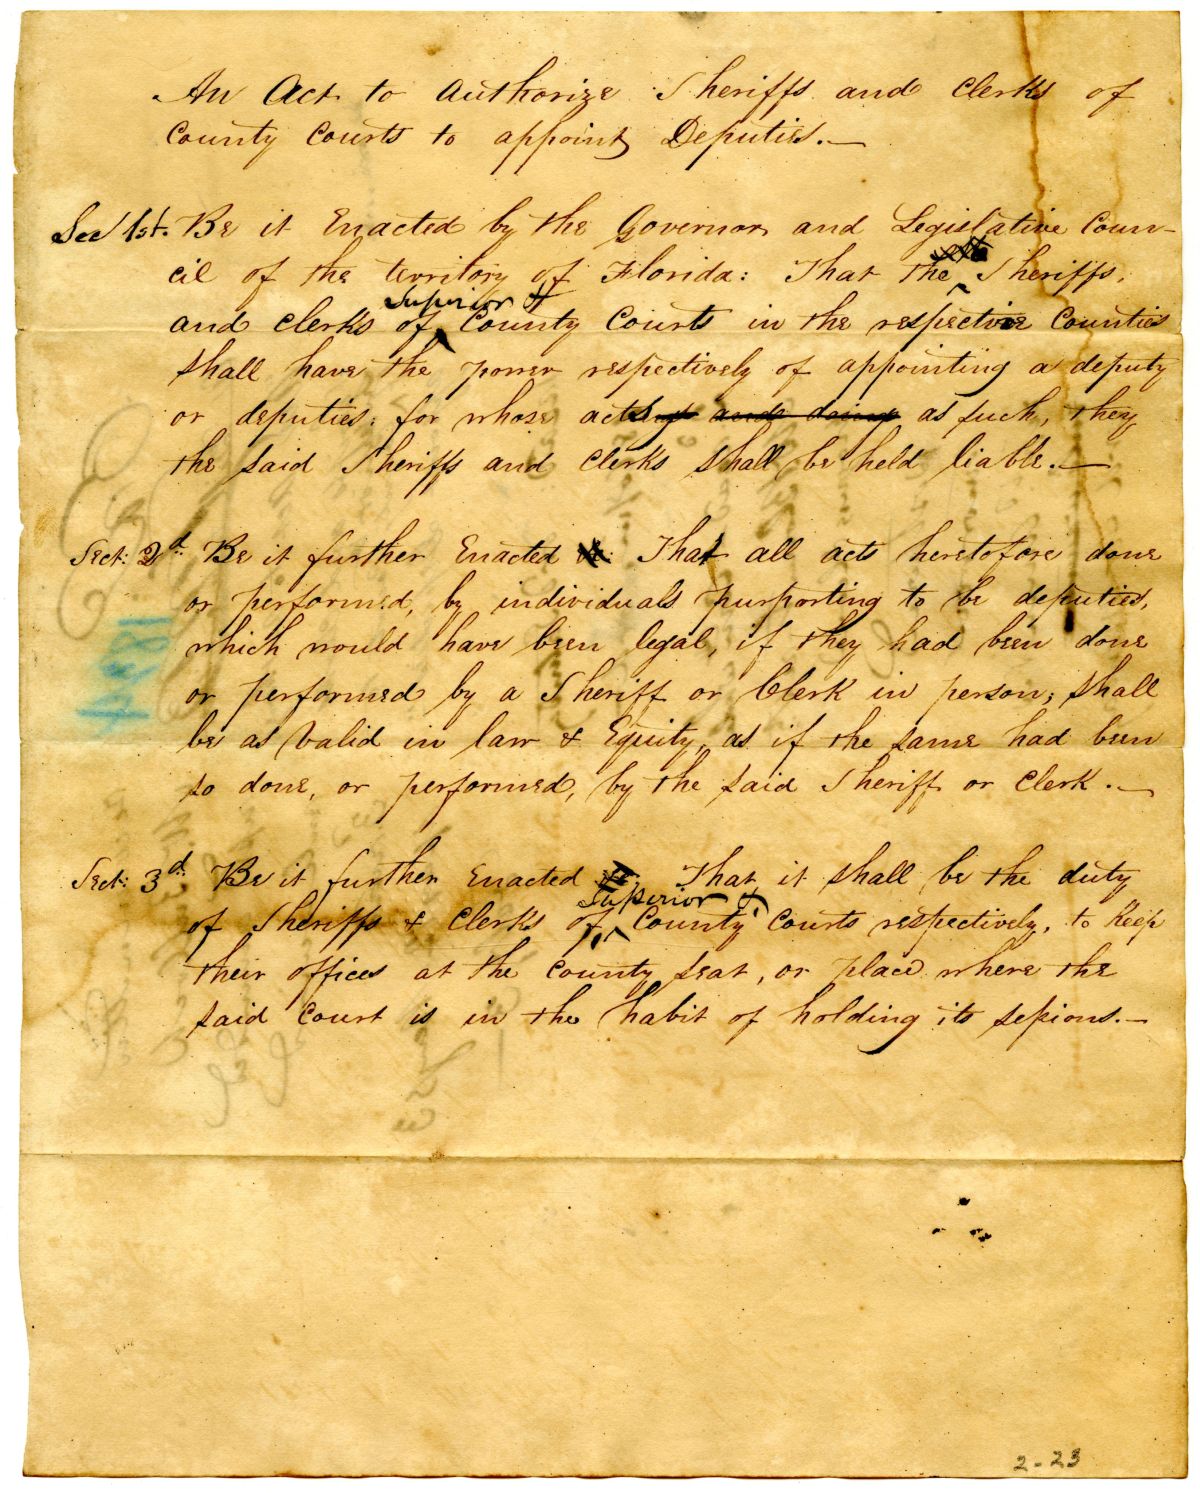 An Act to authorize Sheriffs and Clerks of
County Courts to appoint Deputies.—
Sec 1st. Be it Enacted by the Governor and Legislative Coun-
cil of the territory of Florida: That the Sheriffs,
Superior &
and Clerks of County Courts in the respective Counties
shall have the power respectively of appointing a deputy
or deputies: for whose acts and doings as such, they
the said Sheriffs and Clerks shall be held liable.—
Sect: 2d: Be it further Enacted That all acts heretofore done
or performed, by individuals purporting to be deputies,
which would have been legal, if they had been done
or performed by a Sheriff or Clerk in person; shall
be as valid in law & Equity, as if the same had been
so done, or performed, by the said Sheriff or Clerk.—
Sect: 3d: Be it further Enacted That it shall be the duty
Superior &
of Sheriffs & Clerks of County Courts respectively, to keep
their offices at the county seat, or place where the
said Court is in the habit of holding its sessions.—
1834
2-23